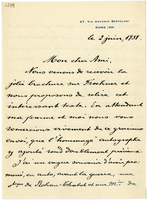 27, VIA ANTONIO BERTOLONI
ROME (29)
le 2 juin, 1938.
Mon cher Ami,
Nous venons de recevoir la
jolie brochure sur
nous proposons de relire cet
intéressant texte. En attendant
ma femme et moi nous vous
remercions vivement de ce gracieux
envoi que l'hommage autographe
y ajouté rend doublement précieux.
J'ai un vague souvenir d'avoir
en, avant la guerre, une
de Rohan-Chabot et une Mme de